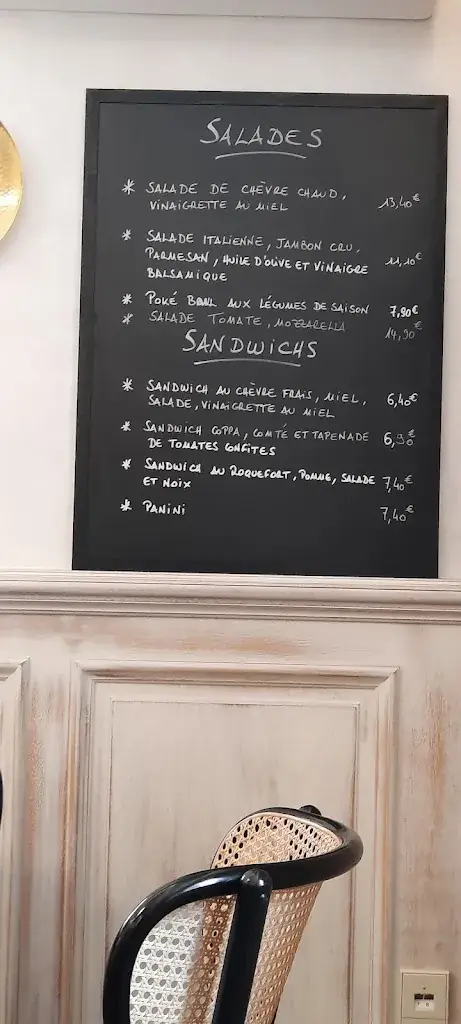 SALADES
* SALADE DE CHÈVRE CHAUD, 13,40€
VINAIGRETTE AU MIEL
* SALADE ITALIENNE, JAMBON CRU,
PARMESAN, HUILE D'OLIVE ET VINAIGRE 11,10€
BALSAMIQUE
* POKÉ BOWL AUX LÉGUMES DE SAISON 7,90€
* SALADE TOMATE, MOZZARELLA 14,90€
SANDWICHS
* SANDWICH AU CHÈVRE FRAIS, MIEL, 6,40€
SALADE, VINAIGRETTE AU MIEL
* SANDWICH COPPA, COMTÉ ET TAPENADE 6,90€
DE TOMATES CONFITES
* SANDWICH AU ROQUEFORT, POMME, SALADE 7,40€
ET NOIX
* PANINI 7,40€